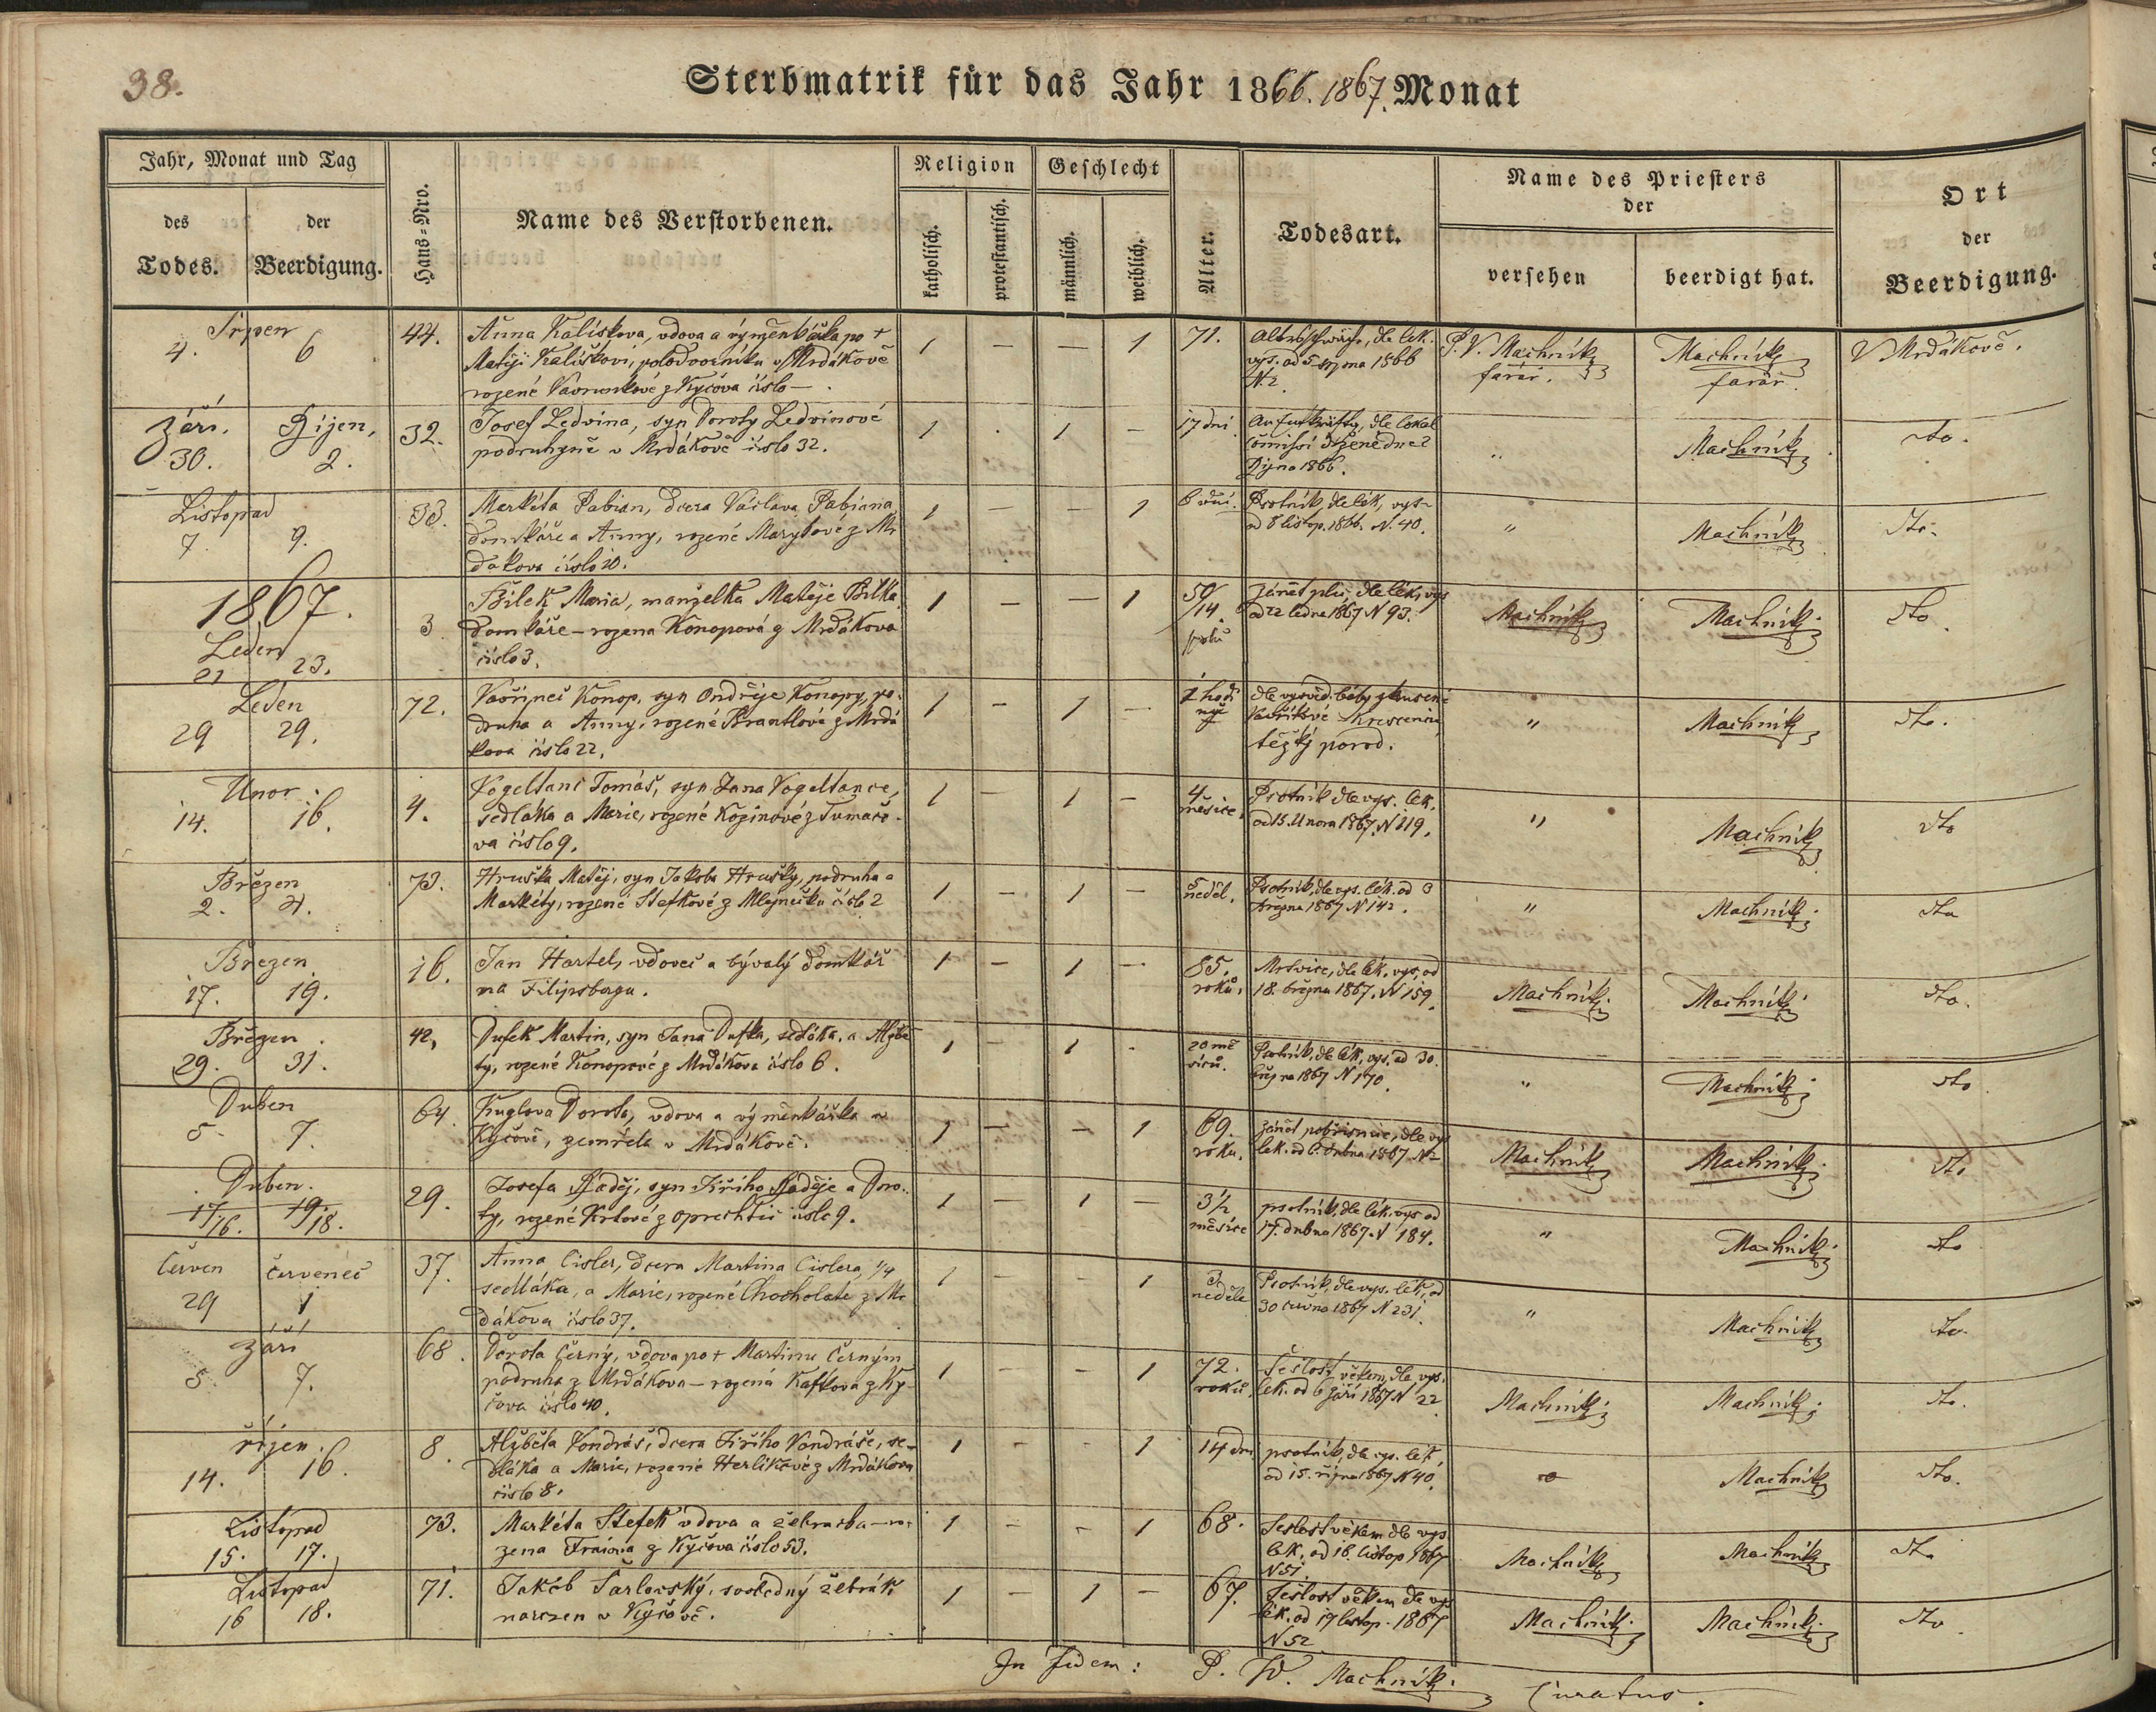 38.
Sterbmatrik für das Jahr 1866. 1867. Monat
Jahr, Monat und Tag
des Todes.
der Beerdigung.
Haus-Nro.
Name des Verstorbenen.
Religion
katholisch.
protestantisch.
Geschlecht
männlich.
weiblich.
Alter.
Todesart.
Name des Priesters
der
versehen
beerdigt hat.
Ort
der
Beerdigung.
Srpen
4. 6 44.
Anna Kaliskova, vdova a výměnkářka po +
Matěji Kališkovi, polodvorníku v Mrdákově
rozené z Kyčova číslo —.
1 — — 1 71.
dle lék.
vys. od 5 srpna 1866
N. 2.
P. V. Machnik
farár.
Machnik
farár.
V Mrdákově.
Září. Říjen.
30. 2. 32.
Josef Ledvina, syn Doroty Ledvinové
podruhyně v Mrdákově číslo 32.
1 . 1 — 17 dní
dle lokal
držené dne 2
Října 1866.
" Machnik dto.
Listopad
7. 9. 33.
Markéta Pabian, dcera Václava Pabiana
domkáře a Anny, rozené z Mr
dakova číslo 20.
1 — — 1 6 dní.
Psotník, dle lék. vys.
od 8 listop. 1866. N. 40.
" Machnik dto.
1867.
Leden
21 23. 3
Bilek Maria, manželka Matěje Bilka
domkáře — rozena Konopová z Mrdákova
číslo 3.
1 — — 1 50/14. roků
zánět plic, dle lék. vys
od 22 ledna 1867 N 93.
Machnik Machnik dto.
Leden
29 29. 72.
Vavřinec Konop, syn Ondřeje Konopy, po-
druha a Anny, rozené Brantlové z Mrdá
kova číslo 22.
1 — 1 — 1 hodi
ny
dle vysvěd. báby zkušené
těžký porod.
" Machnik dto.
Unor.
14. 16. 4.
Vogeltanc Tomáš, syn Jana Vogeltance,
sedláka a Marie, rozené Kozinové z Tumačo-
va číslo 9.
1 — 1 — 4 měsíce.
Psotník dle vys. lék.
od 15. Unora 1867. N 119.
" Machnik dto
Březen
2. 4. 73.
Hruška Matěj, syn Jakoba Hrušky, podruha a
Markéty, rozené Štefkové z Mlejnečku číslo 2
1 — 1 — 5 neděl.
Psotník, dle vys. lék. od 3
března 1867 N 142.
" Machnik. dto
Březen
17. 19. 16.
Jan Hartel, vdovec a bývalý domkář
na Filipsbergu.
1 — 1 — 85. roků.
Mrtvice, dle lék. vys. od
18. března 1867. N 159.
Machnik. Machnik. dto.
Březen.
29. 31. 42.
Dufek Martin, syn Jana Dufka, sedláka, a Alžbě
ty, rozené Konopové z Mrdákova číslo 6.
1 — 1 - 20 mě
síců.
Psotník, dle lék. vys. od 30.
března 1867 N 170.
" Machnik. dto
Duben
5. 7. 64.
Kuglova Dorota, vdova a výměnkářka v
Kyčově, zemřela v Mrdákově.
1 — — 1 69. roku.
zánět pobřišnice, dle vys
lék. od 6. dubna 1867 N 2
Machnik Machnik. dto
Duben.
17/16. 19/18. 29.
Josefa Naděj, syn Jiřího Naděje a Doro-
ty, rozené z Oprechtic číslo 9.
1 — 1 — 3½ měsíce
psotník, dle lék. vys. od
17. dubna 1867. N 184.
" Machnik. dto
Červen Červenec
29 1 37.
Anna Cisler, dcera Martina Cislera, 1/4
sedláka, a Marie, rozené Chocholaté z Mr
dákova číslo 37.
1 — — 1 3 neděle
Psotník, dle vys. lék. od
30 června 1867 N 231.
" Machnik dto.
Září
5 7. 68.
Dorota Černý, vdova po + Martinu Černým
podruha z Mrdákova — rozená Kafkova z Ky-
čova číslo 40.
1 - - 1 72. roků
Sešlost věkem, dle vys.
lék. od 6 září 1867 N 22.
Machnik. Machnik. dto.
říjen.
14. 16. 8.
Alžběta Vondráš, dcera Jiřího Vondráše, se-
dláka a Marie, rozené Herlíkové z Mrdákova
číslo 8.
1 - - 1 14 dní
psotník, dle vys. lék.
od 15. října 1867 N 40.
Machnik dto.
Listopad
15. 17. 73.
Markéta Stefek vdova a žebračka — ro-
zena z Kyčova číslo 53.
1 - - 1 68.
Sešlost věkem dle vys
lék. od 16. listop 1867
N 51.
Machnik Machnik dto
Listopad
16 18. 71.
Jakob Šarlovský, svobodný žebrák
narozen v Kyčově.
1 — 1 — 67.
Sešlost věkem dle vys
lék. od 17 listop. 1867
N 52
Machnik. Machnik. dto
In fidem: P. W. Machnik. Curatus.